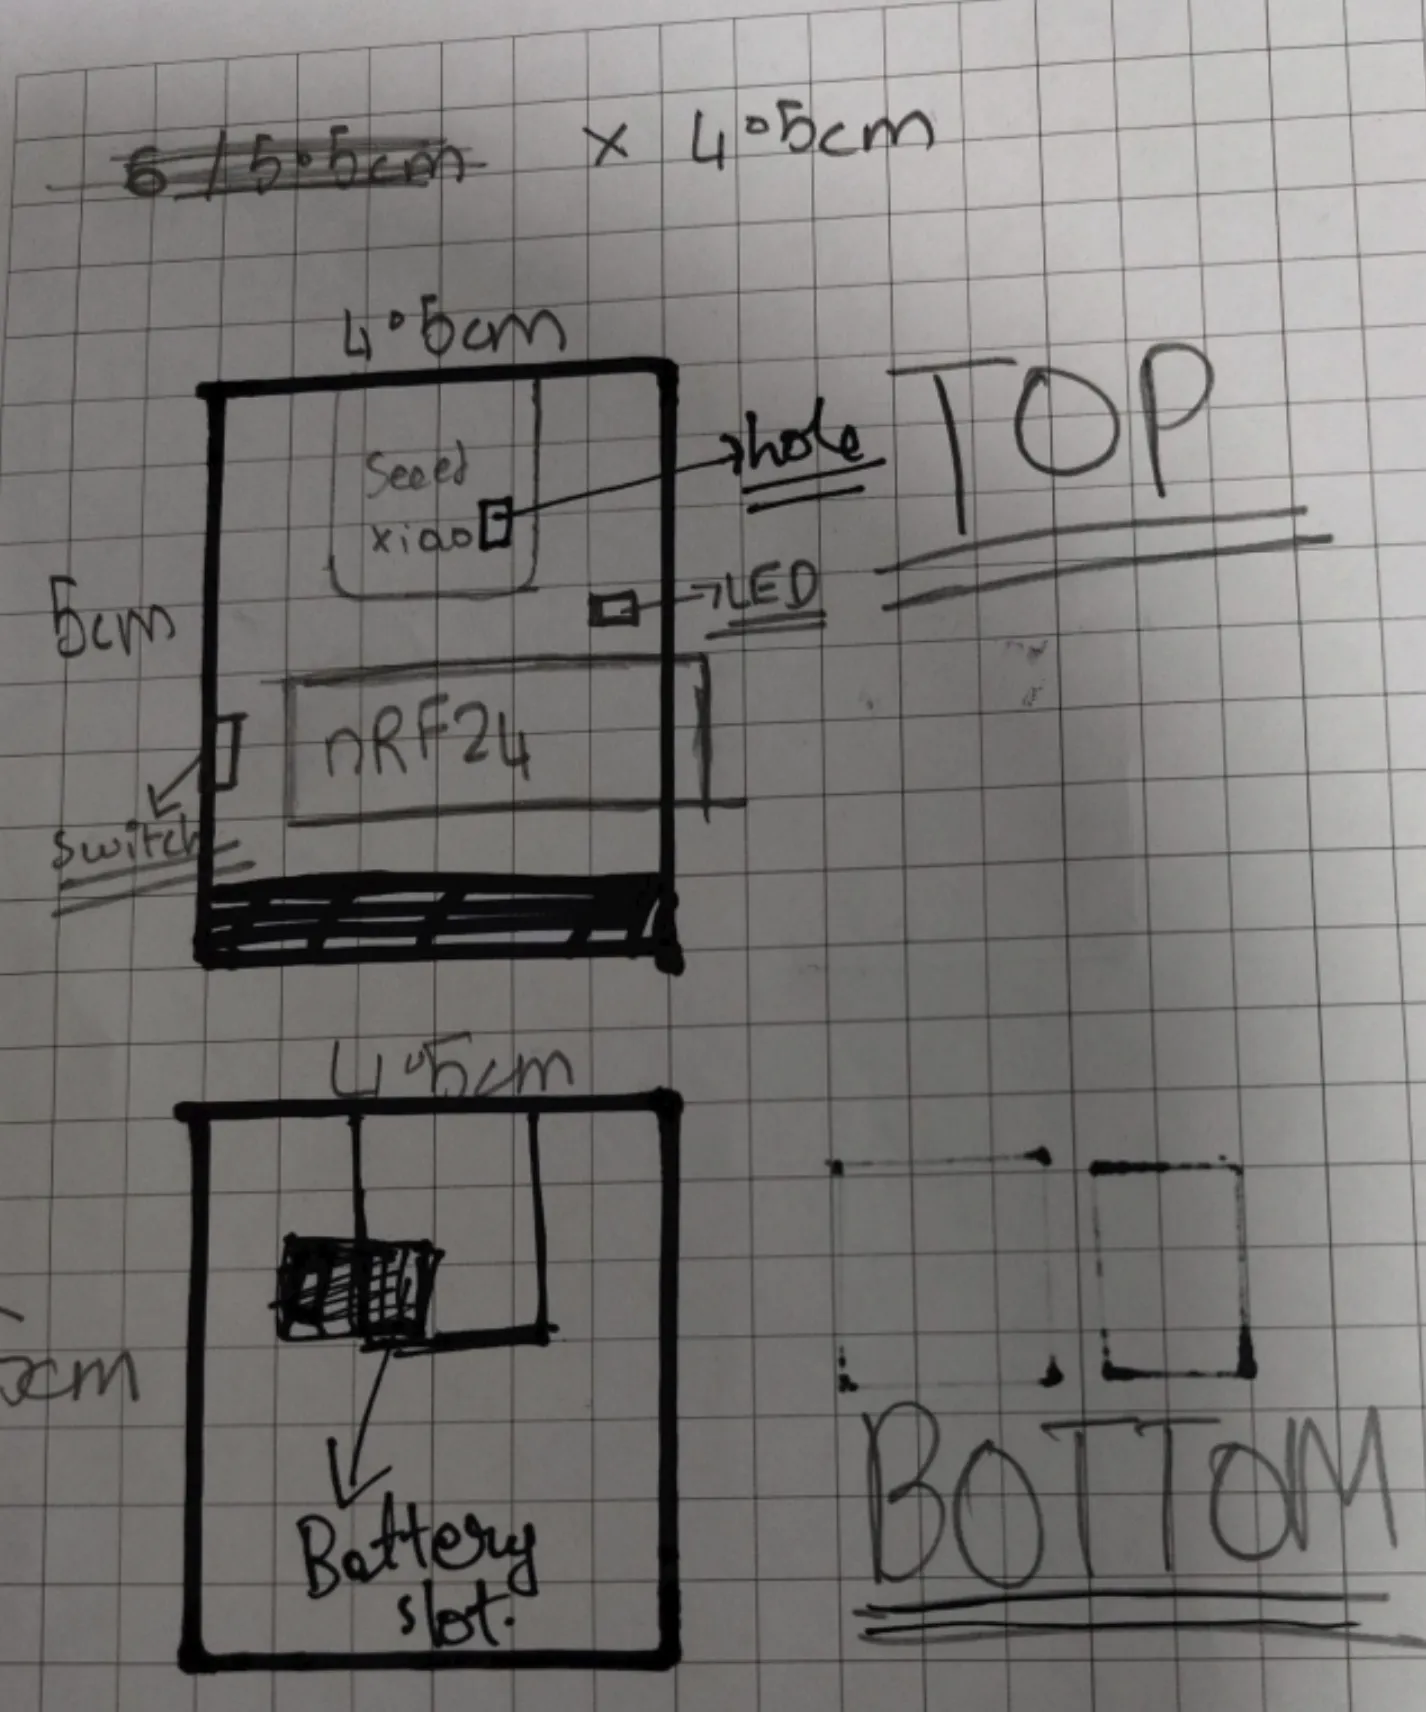 6 / 5.5cm × 4.5cm
4.5cm
TOP
hole
Seeed
xiao
LED
5cm
nRF24
switch
4.5cm
cm
Battery
slot.
BOTTOM